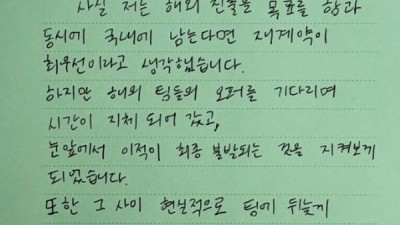 사실 저는 해외 진출을 목표를 함과
동시에 국내에 남는다면 재계약이
최우선이라고 생각했습니다.
하지만 해외 팀들의 오퍼를 기다리며
시간이 지체 되어 갔고,
눈앞에서 이적이 최종 불발되는 것을 지켜보게
되었습니다.
또한 그 사이 현실적으로 팀에 뒤늦게